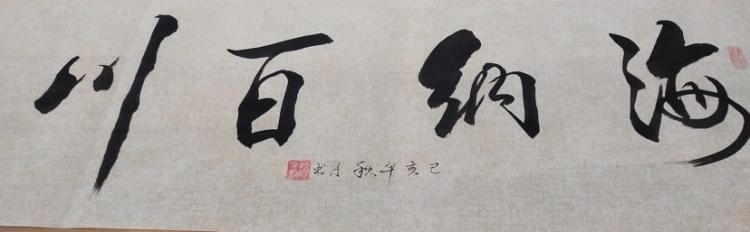 海納百川
己亥年秋月书